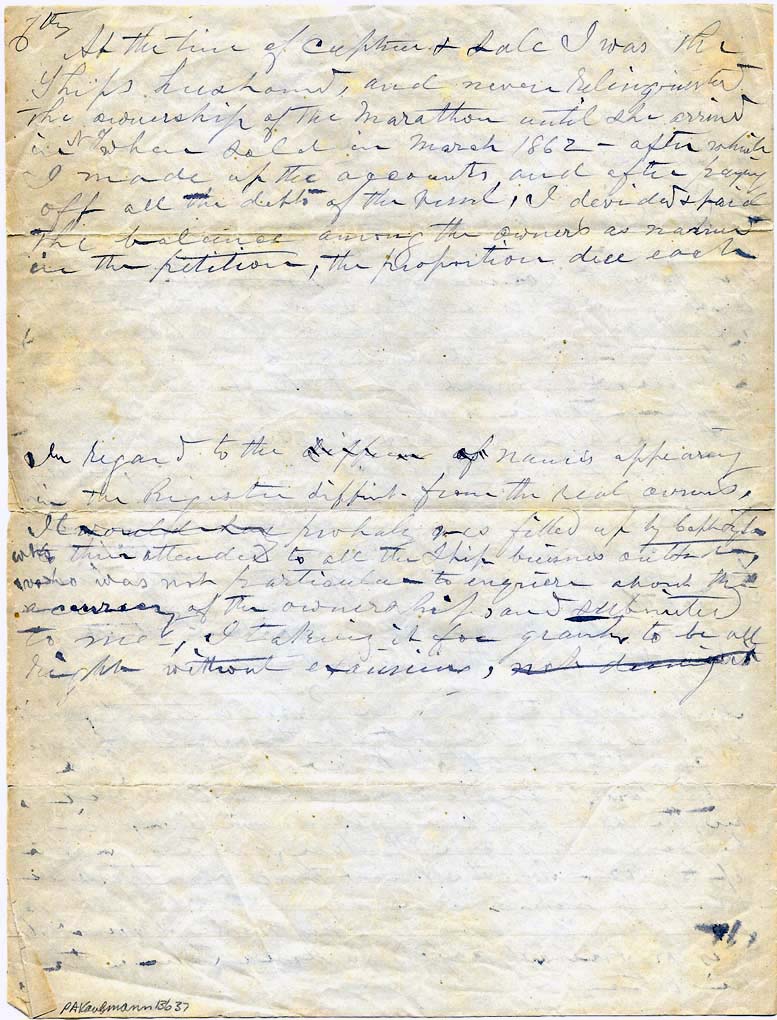 6th
At the time of capture & sale I was the
Ships husband, and never relinquished
the ownership of the Marathon until she arrived
in N Y when sold in March 1862 – after which
I made up the accounts and after paying
off all the debts of the vessel, I devided & paid
the balance among the owners as named
in the petition, the proportion due each
In regard to the of names appearing
in the Register diffirt from the real owners,
It would probaly was filled up by
who then attended to all the Ship buisnes outside,
who was not particular to enquiere about the
accuracy of the ownership, and submited
to me, I taking it for granted to be all
right without examining, not
PAKaufmann13637